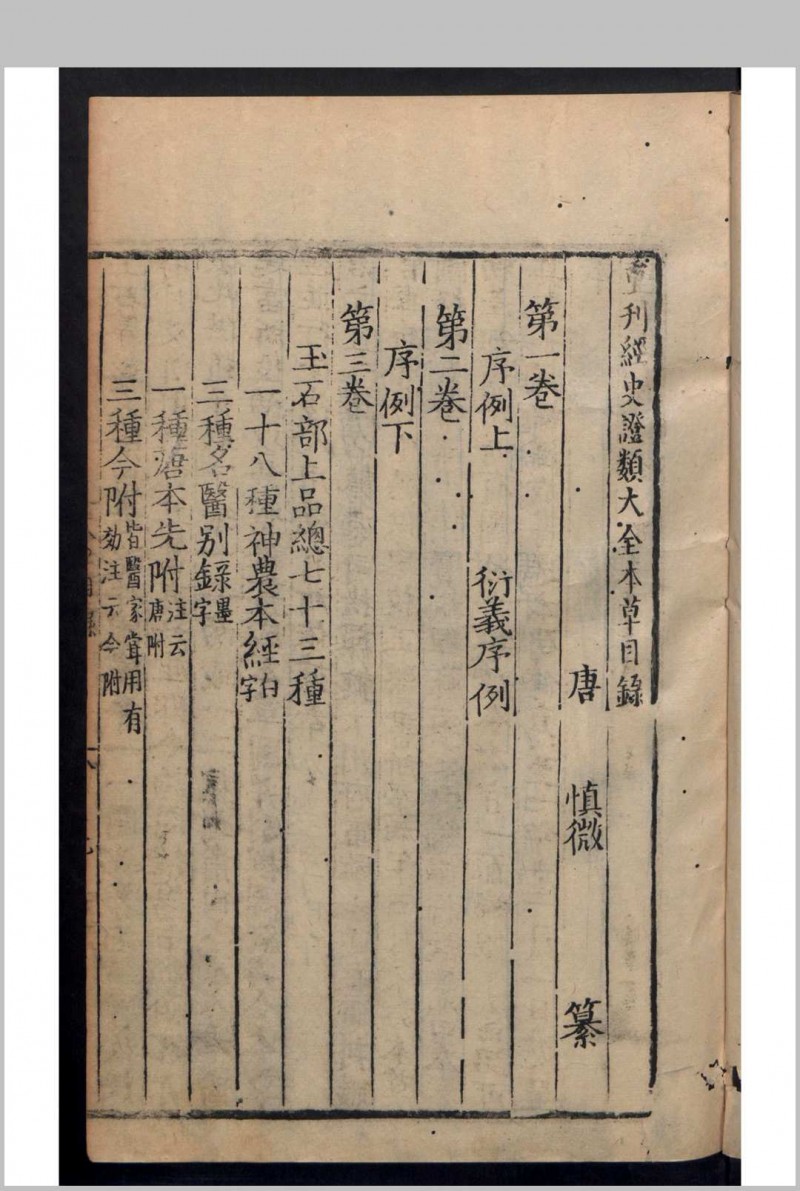 重刊經史證類大全本草目錄
唐 慎微 纂
第一卷
序例上 衍義序例
第二卷
序例下
第三卷
玉石部上品總七十三種
一十八種神農本經白字
三種名醫別錄墨字
一種唐本先附注云唐附
三種今附皆醫家嘗用有効注云今附